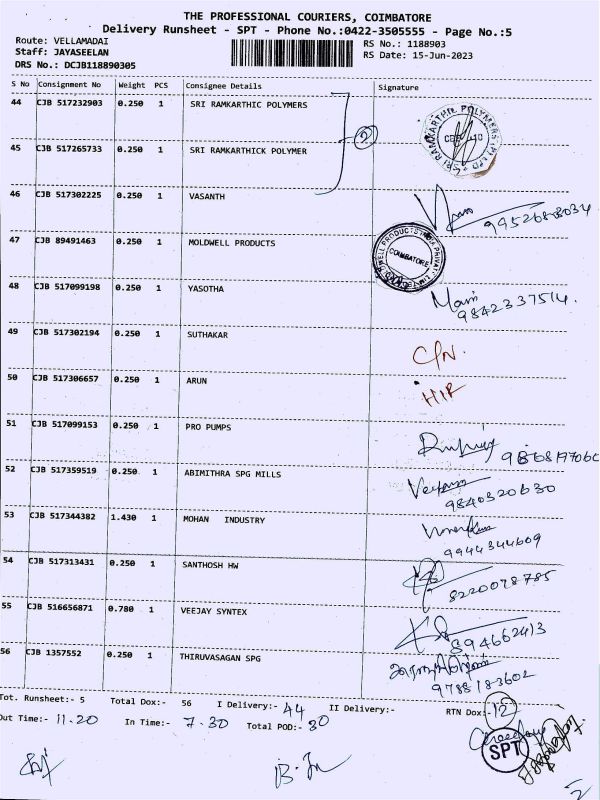 THE PROFESSIONAL COURIERS, COIMBATORE
Delivery Runsheet - SPT - Phone No.:0422-3505555 - Page No.:5
Route: VELLAMADAI RS No.: 1188903
Staff: JAYASEELAN RS Date: 15-Jun-2023
DRS No.: DCJB118890305
S No Consignment No Weight PCS Consignee Details Signature
44 CJB 517232903 0.250 1 SRI RAMKARTHIC POLYMERS
2
SRI RAMKARTHIK POLYMERS
45 CJB 517265733 0.250 1 SRI RAMKARTHICK POLYMER
46 CJB 517302225 0.250 1 VASANTH
9952688034
47 CJB 89491463 0.250 1 MOLDWELL PRODUCTS
COIMBATORE
48 CJB 517099198 0.250 1 YASOTHA
Mani
9842337514.
49 CJB 517302194 0.250 1 SUTHAKAR C/N.
50 CJB 517306657 0.250 1 ARUN
51 CJB 517099153 0.250 1 PRO PUMPS
52 CJB 517359519 0.250 1 ABIMITHRA SPG MILLS
9840320630
53 CJB 517344382 1.430 1 MOHAN INDUSTRY
9944344609
54 CJB 517313431 0.250 1 SANTHOSH HW
8220098785
55 CJB 516656871 0.780 1 VEEJAY SYNTEX
894662413
56 CJB 1357552 0.250 1 THIRUVASAGAN SPG
9788183602
Tot. Runsheet:- 5 Total Dox:- 56 I Delivery:- 44 II Delivery:- RTN Dox:- 12
Out Time:- 11.20 In Time:- 7.30 Total POD:- 30
SPT